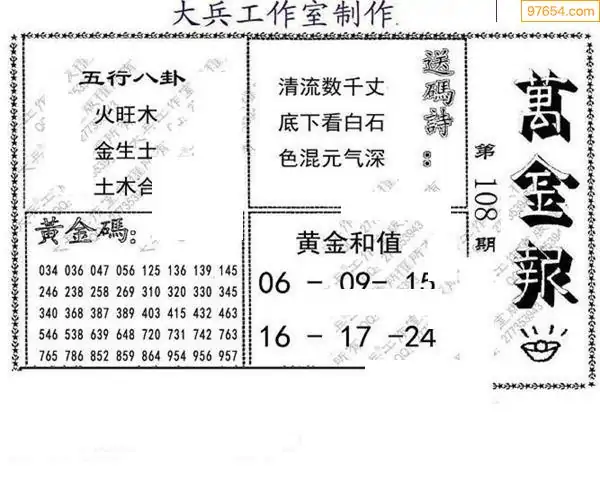 大兵工作室制作
97654.com
萬金報
第108期
送碼詩：
清流数千丈
底下看白石
色混元气深
五行八卦
火旺木
金生土
土木合
黃金碼：
034 036 047 056 125 136 139 145
246 238 258 269 310 320 330 345
340 368 387 389 403 415 432 463
546 538 639 648 720 731 742 763
765 786 852 859 864 954 956 957
黄金和值
06 - 09 - 15
16 - 17 - 24